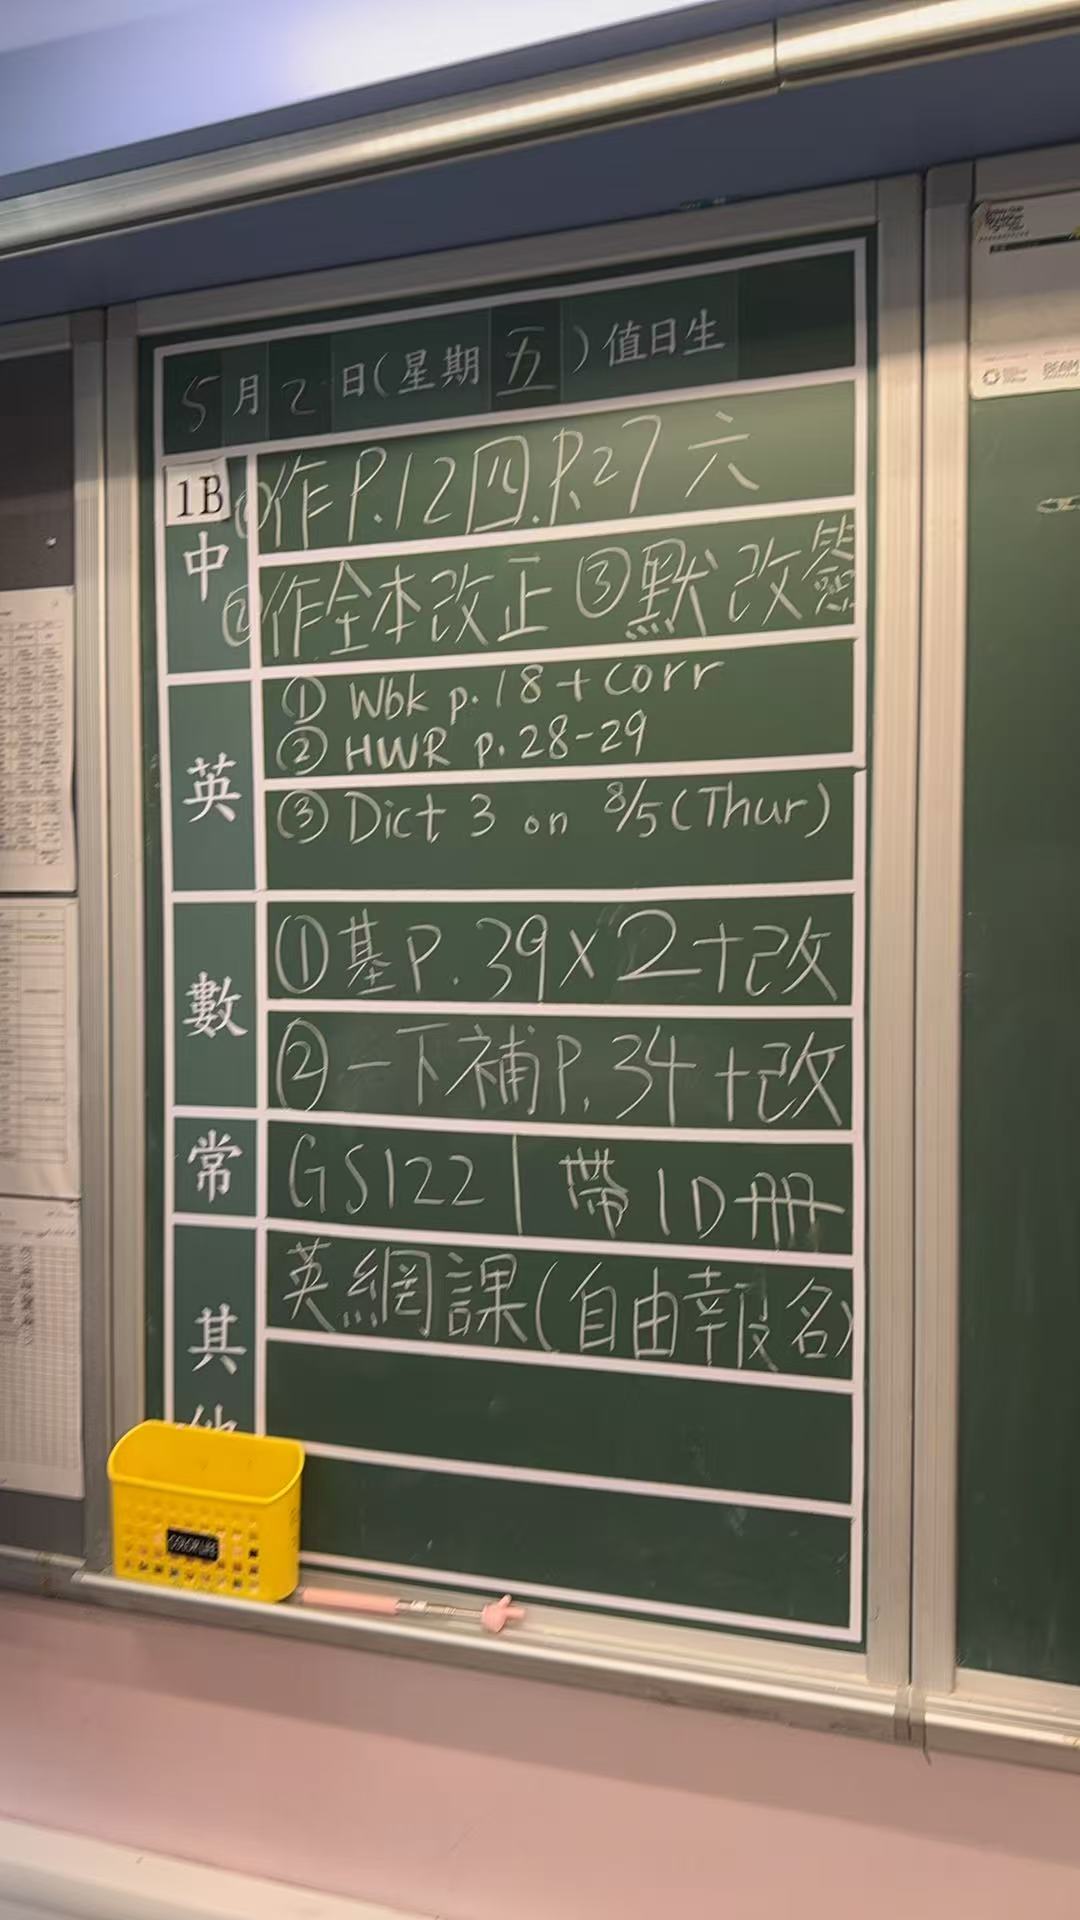 5月2日(星期五)值日生
1B
中
①作P.12四.P.27 六
②作全本改正 ③默改簽
英
① Wbk p.18+corr
② HWR p.28-29
③ Dict 3 on 8/5(Thur)
數
①基P.39×2+改
②一下補P.34+改
常
GS122 | 帶1D冊
其
英網課(自由報名)
COLOR LIFE
BEAM